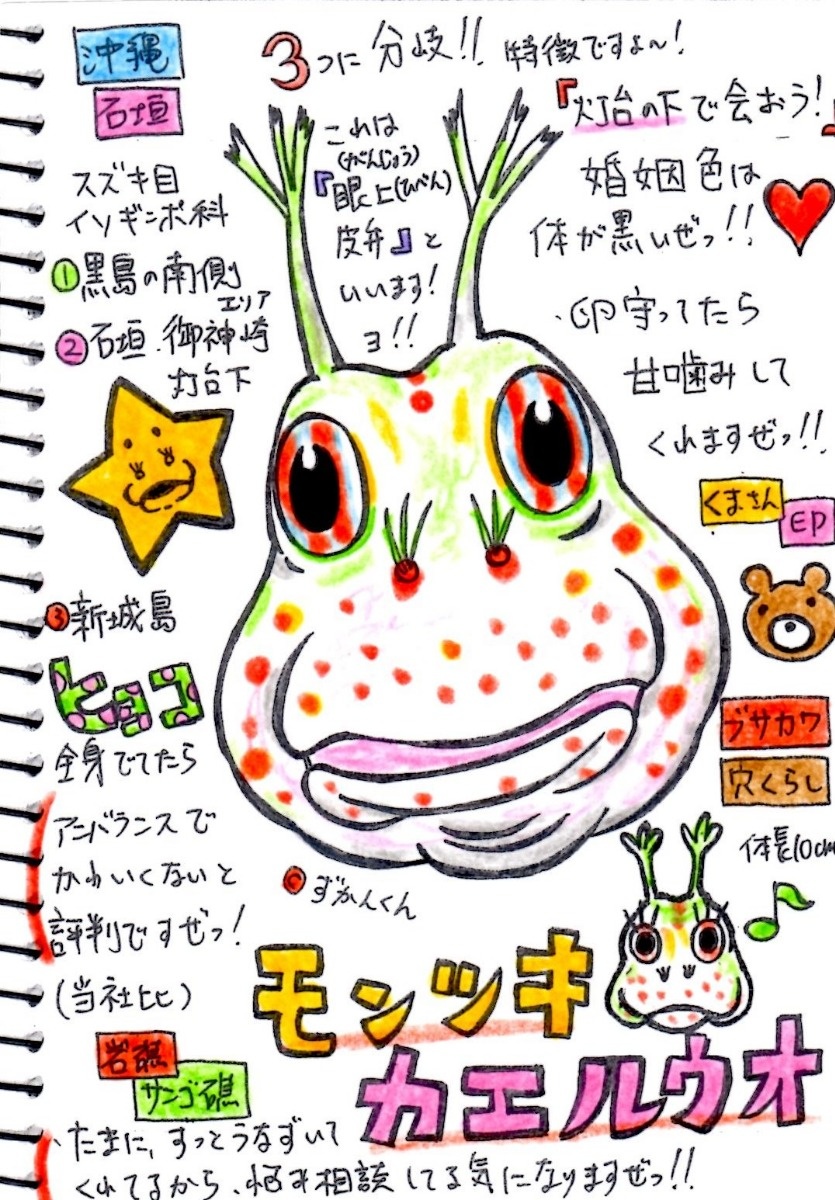 沖縄
石垣
3つに分岐!! 特徴ですよ〜!
『灯台の下で会おう!』
スズキ目
イソギンポ科
①黒島の南側
エリア
②石垣.御神崎
灯台下
これは
(がんじょう)
『眼上(ひべん)
皮弁』と
いいます!
ヨ!!
婚姻色は
体が黒いぜっ!!
卵守ってたら
甘噛みして
くれますぜっ!!
くまさん
EP
③新城島
ヒョコ
全身でてたら
アンバランスで
かわいくないと
評判ですぜっ!
(当社比)
ブサカワ
穴くらし
体長10cm
©ずかんくん
モンツキ
カエルウオ
岩礁
サンゴ礁
たまに、すっとうなずいて
くれてるから、悩み相談してる気になりますぜっ!!